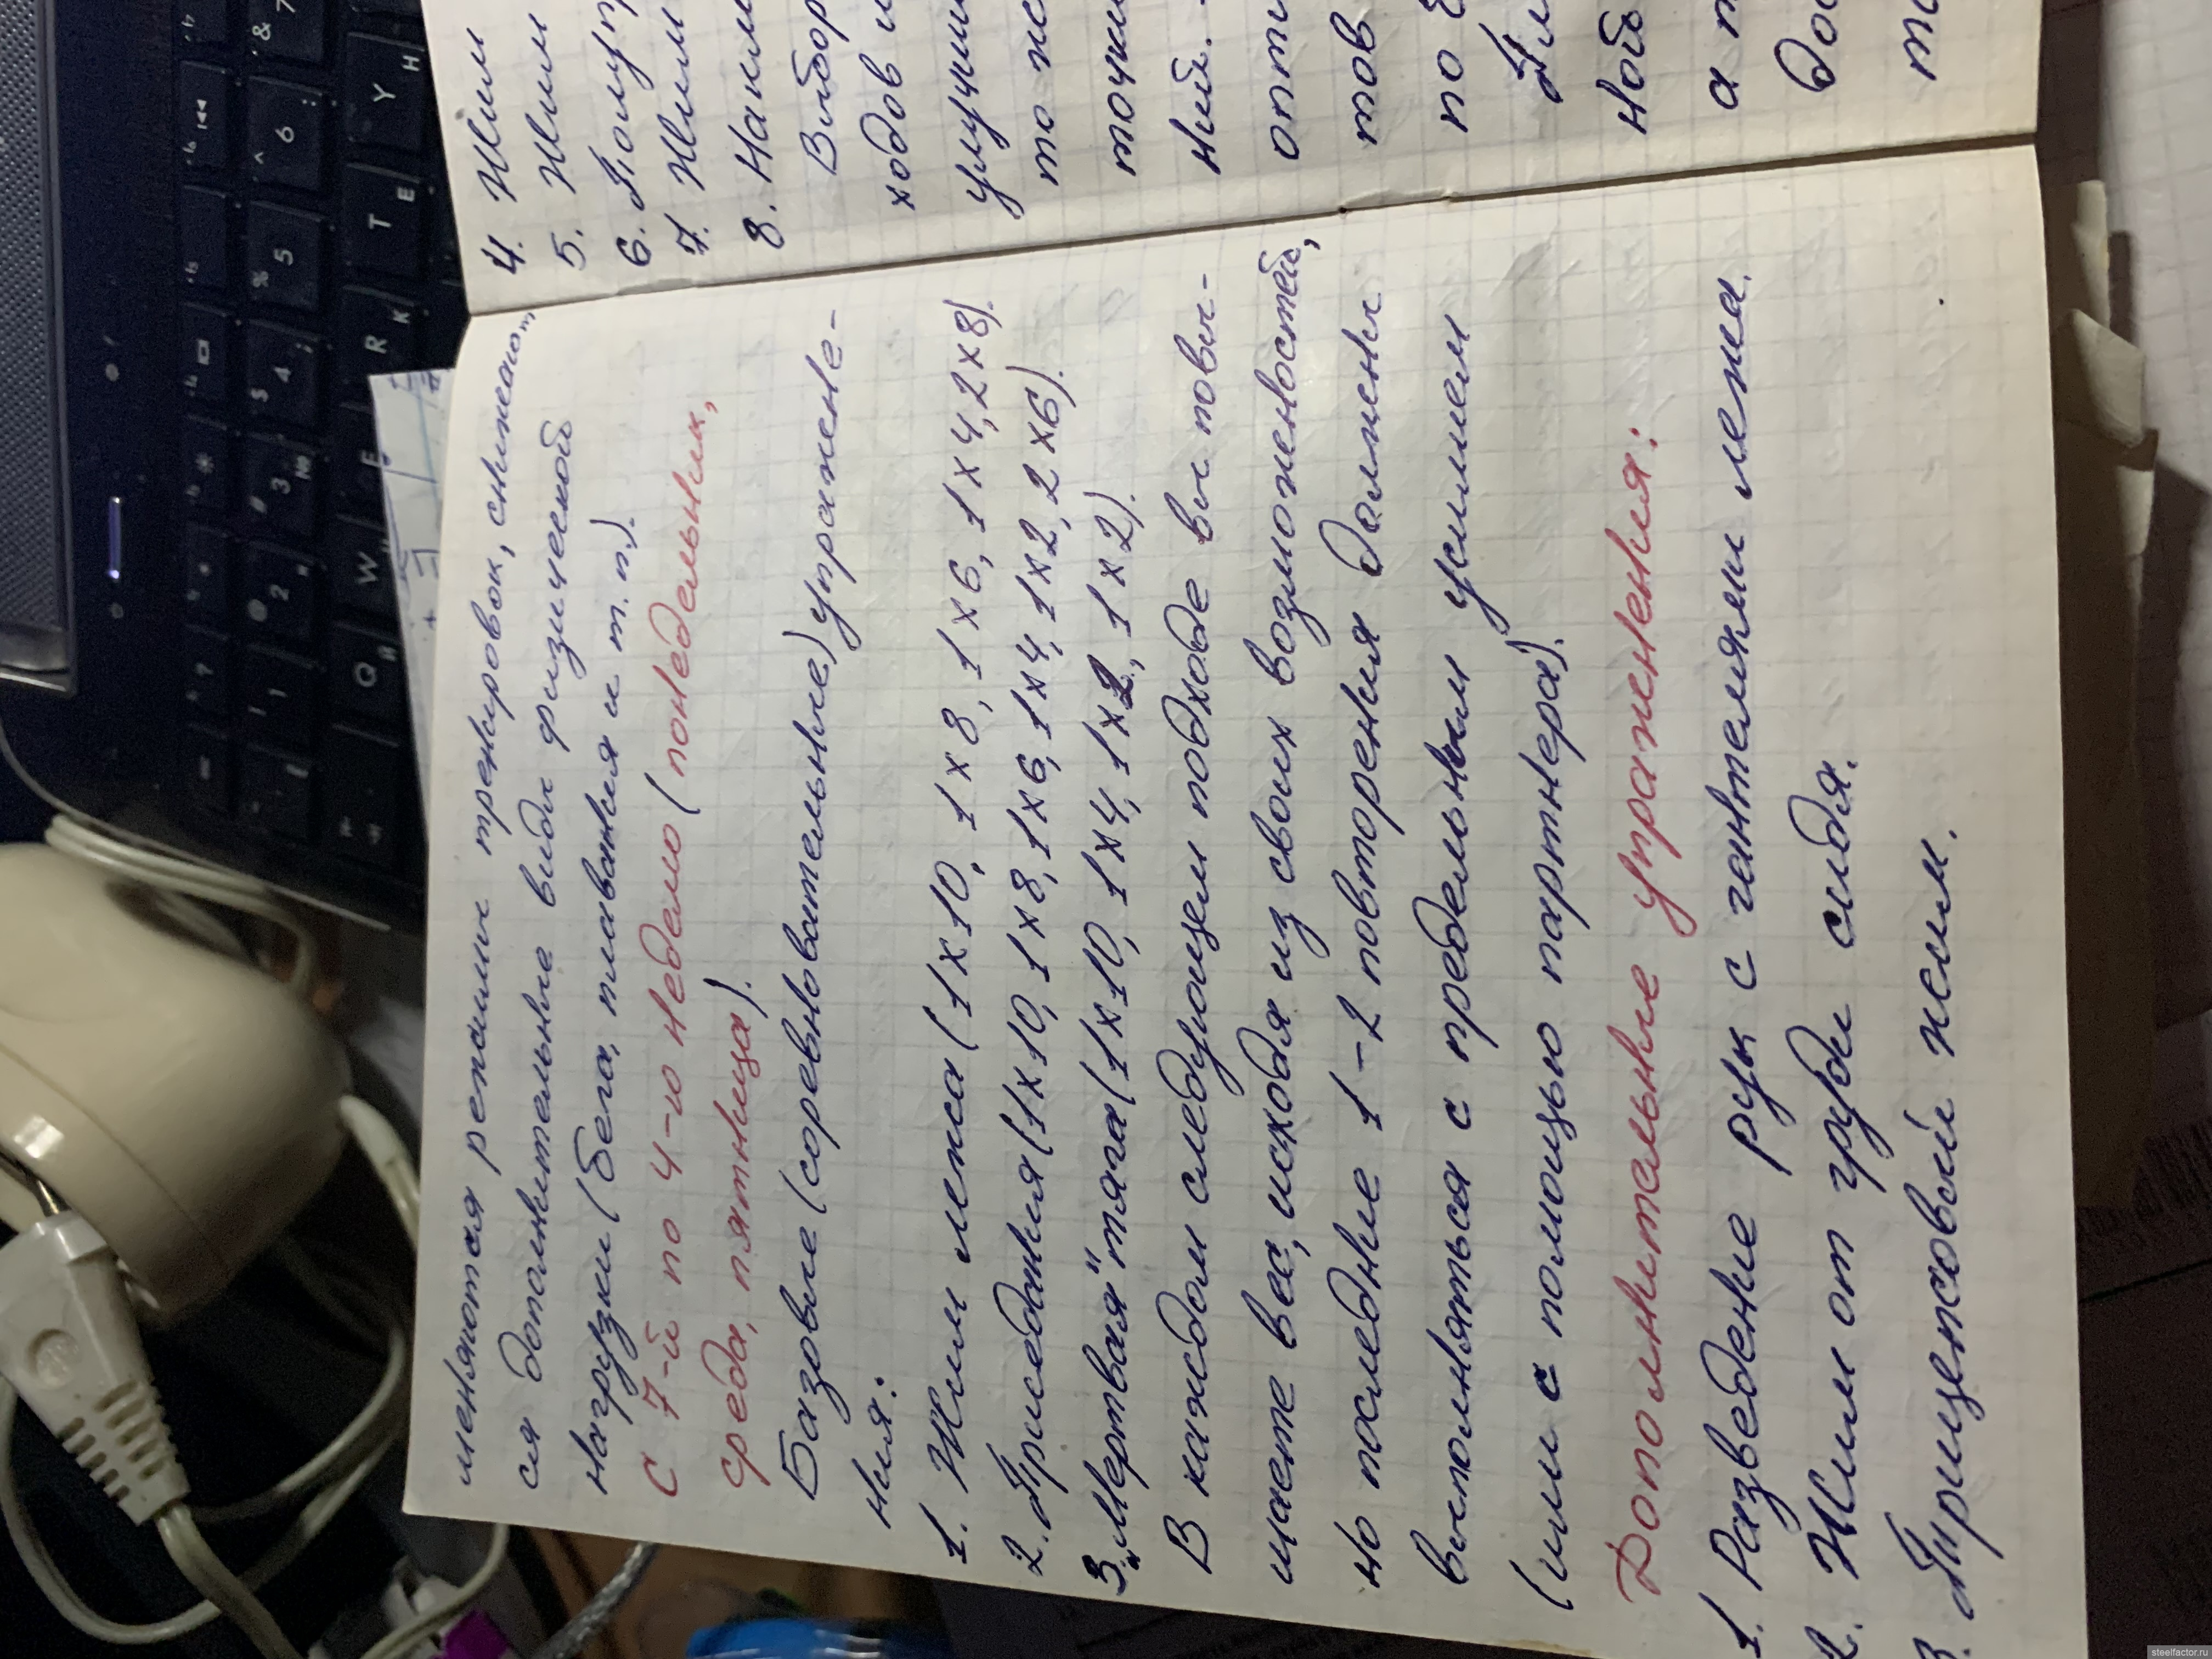 меняются режимы тренировок, снижают
ся дополнительные виды физической
нагрузки (бега, плавания и т.п.).
С 7-й по 4-ю неделю (понедельник,
среда, пятница).
Базовые (соревновательные) упражне-
ния:
1. Жим лежа (1х10, 1х8, 1х6, 1х4, 2х8).
2. Приседания (1х10, 1х8, 1х6, 1х4, 1х2, 2х6).
3. „Мертвая" тяга (1х10, 1х4, 1х2, 1х2).
В каждом следующем подходе вы повы-
шаете вес, исходя из своих возможностей,
но последние 1-2 повторения должны
выполняться с предельным усилием
(или с помощью партнера).
Дополнительные упражнения:
1. Разведение рук с гантелями лежа.
2. Жим от груди сидя.
3. Трицепсовый жим.
4. Жим
5. Жим
6. Полупр
7. Жим
8. Накл
Выбор
ходов и
улучши
то же
точки
ний.
опти
тов
по
Дл
ной
а т
До
то
steelfactor.ru